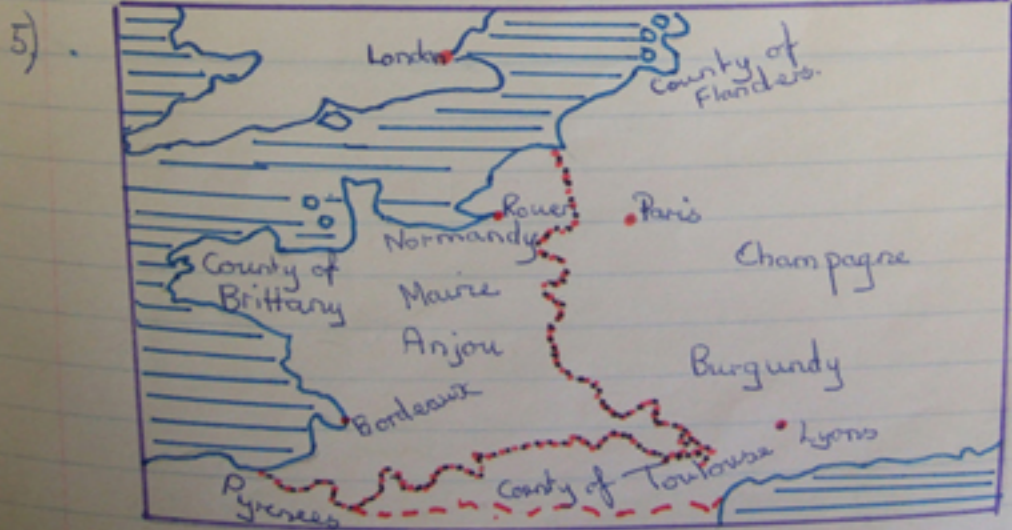 5) .
London
County of
Flanders.
Rouen
Paris
Normandy
Champagne
County of
Brittany
Maine
Anjou
Burgundy
Bordeaux
Lyons
County of Toulouse
Pyrenees